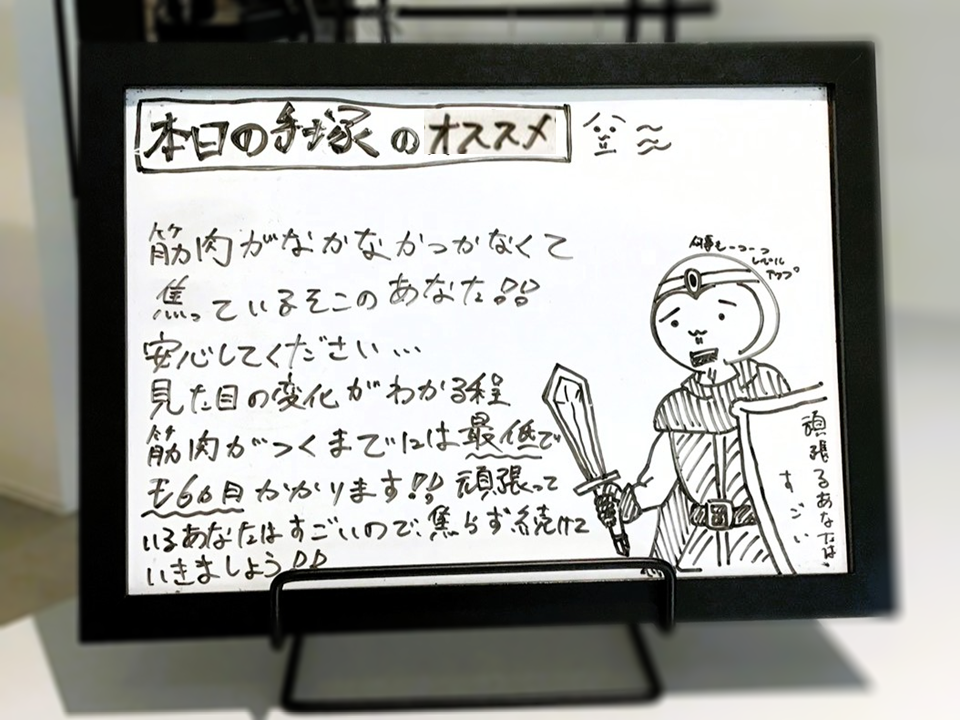 本日の手塚のオススメ
筋肉がなかなかつかなくて
焦っているそこのあなた!!
安心してください…
見た目の変化がわかる程
筋肉がつくまでには最低で
も6ヵ月かかります!! 頑張って
いるあなたはすごいので、焦らず続けて
いきましょう!!
レベル
アップ
頑張るあなたは、
すごい